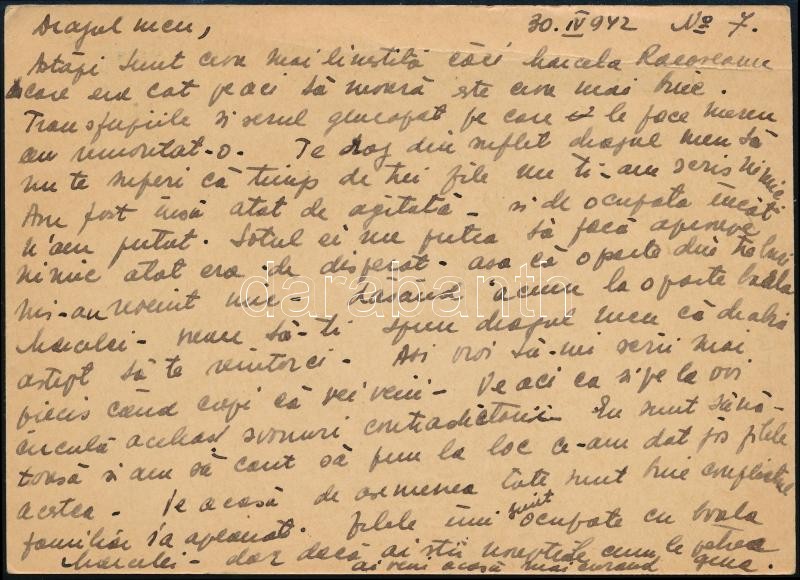 Dragul meu, 30.IV 942 No 7.
Astăzi sunt ceva mai liniștită căci Marcela Racoveanu
care era cât peaci să moară este ceva mai bine.
Transfuziile și serul glucozat pe care le face mereu
au remontat-o. Te rog din suflet dragul meu să
nu te superi că timp de trei zile nu ți-am scris nimic
Am fost însă atât de agitată - și de ocupată încât
n'am putut. Soțul ei nu putea să facă aproape
nimic atât era de disperat - așa că o parte din treburi
mi-au revenit mie - Lăsând acum la o parte boala
Marcelei - vreau să-ți spun dragul meu că deabia
aștept să te reîntorci - Ași vroi să-mi scrii mai
precis când crezi că vei veni - Pe aci ca și pe la voi
circulă aceleași svonuri contradictorii - Eu sunt sănă-
toasă și am să caut să pun la loc ce-am dat jos zilele
acestea - Pe acasă de asemenea toate sunt bine conflictul
familiar s'a aplanat. Zilele îmi sunt ocupate cu boala
Marcelei - dar dacă ai ști nopțile cum le petrec
ai veni acasă mai curând Gina.
darabanth